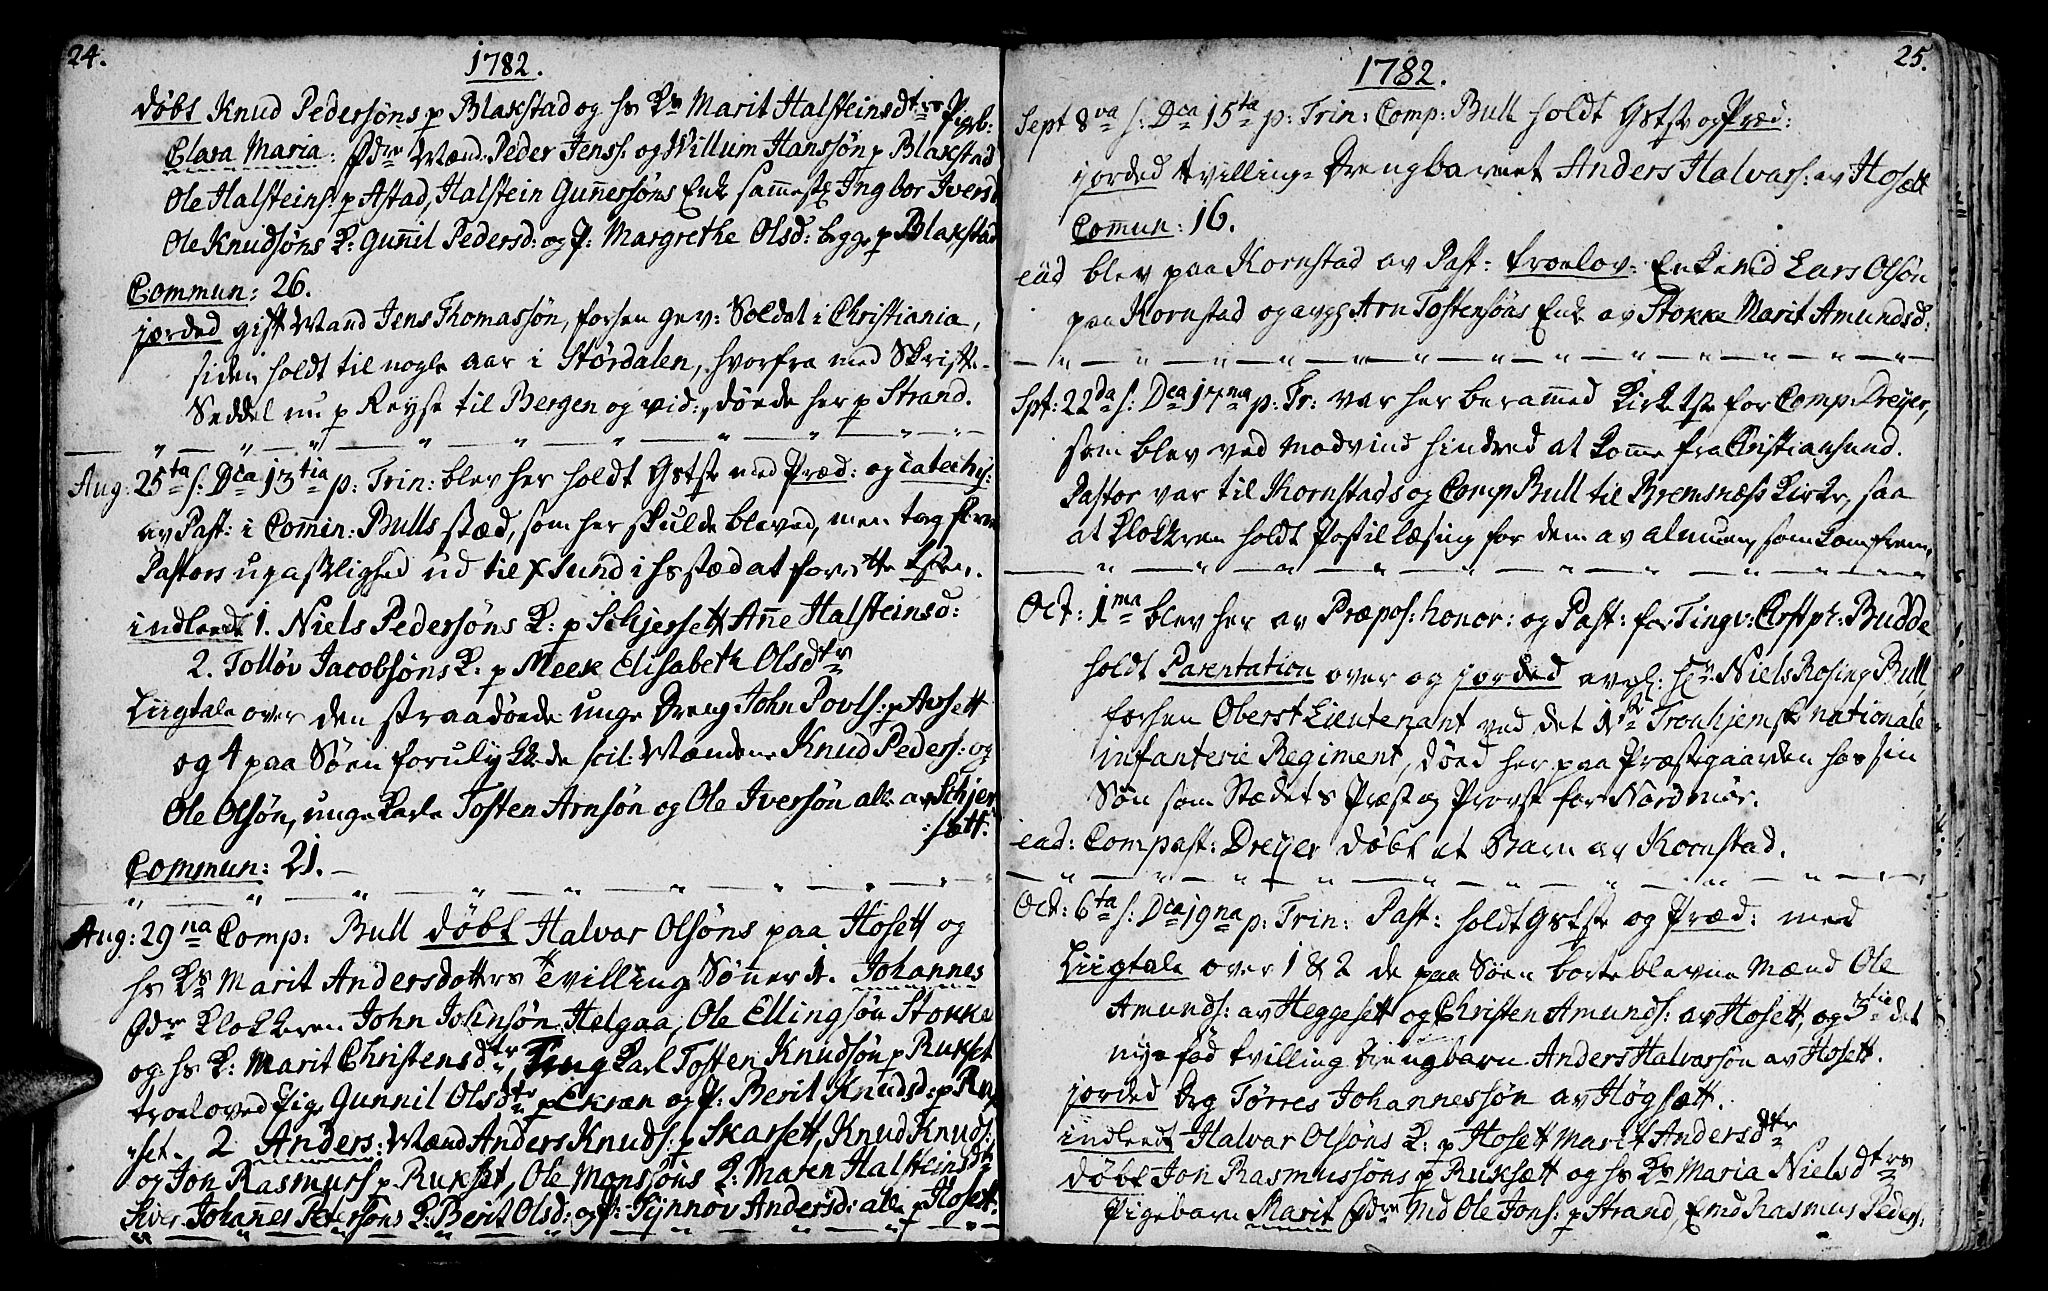 24.
1782.
døbt Knud Pedersøns p Blakstad og hs K: Marit Halsteinsdtrs Pigeb:
Clara Maria: Fdre Mænd: Peder Jenss: og Willum Hanssøn p Blakstad
Ole Halsteins: p Astad, Halstein Gunnersøns Enk sammest: Ingbor Iversd
Ole Knudsøns K: Gunnil Pedersd: og P: Margrethe Olsd: begge p Blakstad
Commun: 26.
jorded gift Mand Jens Thomassøn, forhen gev: Soldat i Christiania,
siden holdt til nogle aar i Størdalen, hvorfra med Skrifte-
Seddel nu p Reyse til Bergen og vid:, døede her p Strand.
Aug: 25ta s: Dca 13tia p: Trin: blev her holdt Gstste med Præd: og catechis:
av Past: i Comin: Bulls stæd, som her skulde bleved, men tog
Pastors upaslighed ud til Xsund i hs stæd at forrette
indleedt 1. Niels Pedersøns K: p Schjersett Anne Halsteinsd:
2. Tolløv Jacobsøns K: p Meek Elisabeth Olsdtr
Liigtale over den straadøede unge Dreng John Povls: p Avsett
og 4 paa Søen forulykkede scil: Mændene Knud Peders: og
Ole Olsøn, unge Karle Tosten Arnsøn og Ole Iversøn alle av Schjer
:sett.
Commun: 21.
Aug: 29na Comp: Bull døbt Halvor Olsøns paa Hosett og
hs Ks Marit Andersdottrs Tvilling Sønner 1. Johannes
Fdre Klokkeren John Johnsøn Helgaa, Ole Ellingsøn Stokke
og hs K: Marit Christensdtr, Ung Karl Tosten Knudsøn p Rukset
troeloved Pige Gunnil Olsdtr p Ekren og P: Berit Knudsd: p Ruk
set. 2 Anders: Mænd Anders Knuds: p Skarsett, Knud Knuds:
og Jon Rasmuss p Rukset, Ole Monssøns K: Maren Halsteinsdtr
Siver Johanes Petersøns K: Berit Olsd: og P: Synnov Andersd: alle p Hosett.
25.
1782.
Sept 8va s: Dca 15ta p: Trin: Comp: Bull holdt Gstste og Præd:
jorded tvilling-Drengbarnet Anders Halvors: av Hosett
Commun: 16.
ead blev paa Kornstad av Past: troelov: Enkemd Lars Olsøn
paa Kornstad og avgl Arn Tostensøns Enk av Stokke Marit Amundsd:
Spt: 22da s: Dca 17na p: Tr: var her berammed Kirketste for Comp: Dreyer,
som blev ved modvind hindred at komme fra Christiansund.
Pastor var til Kornstads og Comp Bull til Bremsnæss Kirke, saa
at Klokkren holdt Postillæsing for dem av almuen, som kom frem.
Oct: 1ma blev her av Præpos: honor: og Past: for Tingv: Cost pr: Budde
holdt Parentation over og jorded avgl: Hr Niels Rosing Bull,
forhen Oberst Lieutenant ved det 1ste Tronhjemske nationale
infanterie Regiment, døed her paa Præstegaarden hos sin
Søn som Stædets Præst og Provst for Nordmør.
ead: Compast: Dreyer døbt et Barn av Kornstad.
Oct: 6ta s: Dca 19na p: Trin: Past: holdt Gstste og Præd: med
Liigtale over 1 & 2 de paa Søen borteblevne Mænd Ole
Amunds: av Heggesett og Christen Amunds: av Hosett, og 3tie det
nyefød tvilling drengbarn Anders Halvorssøn av Hosett.
jorded Drg Tørres Johannessøn av Høgsett.
indleedt Halvor Olsøns K: p Hosett Marit Andersdtr
døbt Jon Rasmussøns p Ruksett og hs Ks Maria Nielsdtrs
Pigebarn Marit Fdre Md Ole Jons: p Strand, Emd Rasmus Peders: